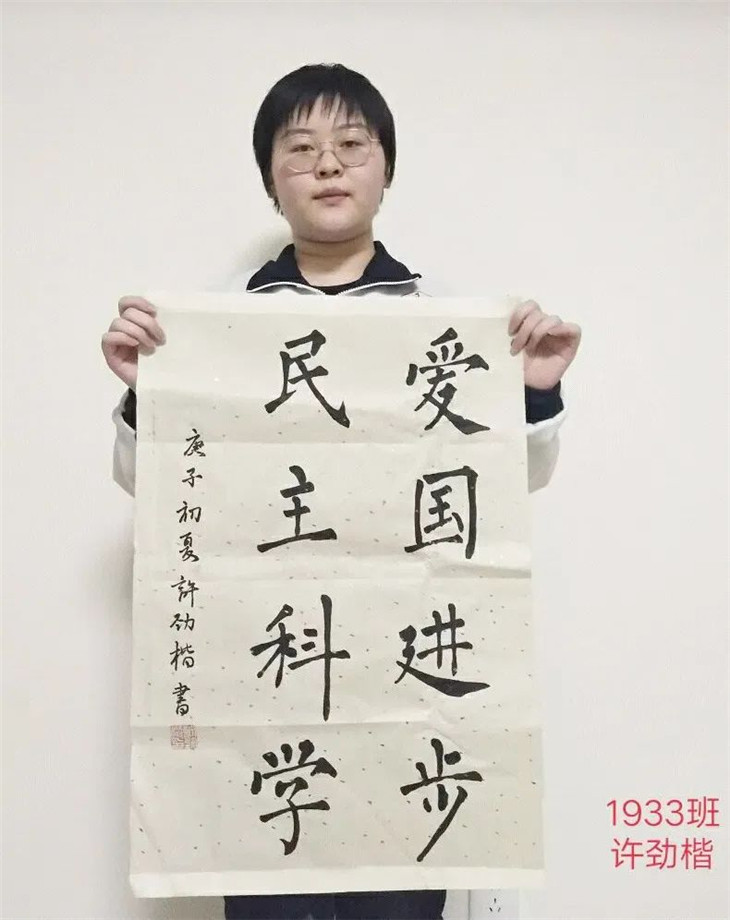 爱国进步
民主科学
庚子初夏許劲楷書
1933班
许劲楷